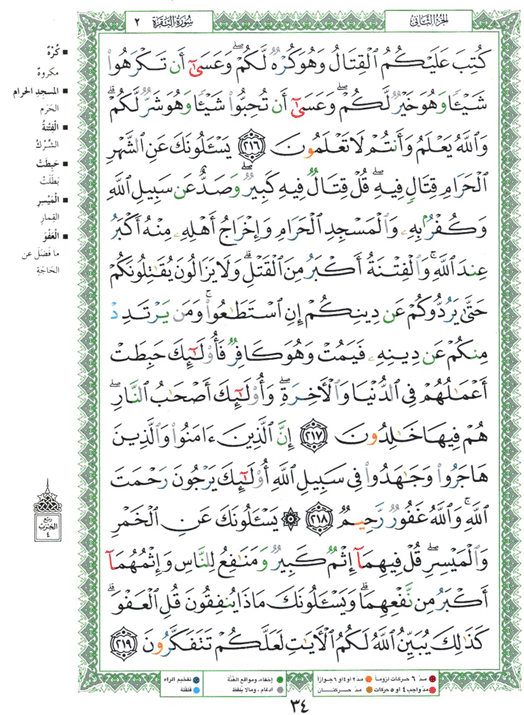 الجزء الثاني
سورة البقرة
٢
كُتِبَ عَلَيْكُمُ الْقِتَالُ وَهُوَ كُرْهٌ لَّكُمْ ۖ وَعَسَىٰٓ أَن تَكْرَهُوا
شَيْـًٔا وَهُوَ خَيْرٌ لَّكُمْ ۖ وَعَسَىٰٓ أَن تُحِبُّوا شَيْـًٔا وَهُوَ شَرٌّ لَّكُمْ ۗ
وَاللَّهُ يَعْلَمُ وَأَنتُمْ لَا تَعْلَمُونَ ٢١٦ يَسْـَٔلُونَكَ عَنِ الشَّهْرِ
الْحَرَامِ قِتَالٍ فِيهِ ۖ قُلْ قِتَالٌ فِيهِ كَبِيرٌ ۖ وَصَدٌّ عَن سَبِيلِ اللَّهِ
وَكُفْرٌۢ بِهِۦ وَالْمَسْجِدِ الْحَرَامِ وَإِخْرَاجُ أَهْلِهِۦ مِنْهُ أَكْبَرُ
عِندَ اللَّهِ ۚ وَالْفِتْنَةُ أَكْبَرُ مِنَ الْقَتْلِ ۗ وَلَا يَزَالُونَ يُقَٰتِلُونَكُمْ
حَتَّىٰ يَرُدُّوكُمْ عَن دِينِكُمْ إِنِ اسْتَطَٰعُوا ۚ وَمَن يَرْتَدِدْ
مِنكُمْ عَن دِينِهِۦ فَيَمُتْ وَهُوَ كَافِرٌ فَأُو۟لَٰٓئِكَ حَبِطَتْ
أَعْمَٰلُهُمْ فِي الدُّنْيَا وَالْءَاخِرَةِ ۖ وَأُو۟لَٰٓئِكَ أَصْحَٰبُ النَّارِ ۖ
هُمْ فِيهَا خَٰلِدُونَ ٢١٧ إِنَّ الَّذِينَ ءَامَنُوا وَالَّذِينَ
هَاجَرُوا وَجَٰهَدُوا فِي سَبِيلِ اللَّهِ أُو۟لَٰٓئِكَ يَرْجُونَ رَحْمَتَ
اللَّهِ ۚ وَاللَّهُ غَفُورٌ رَّحِيمٌ ٢١٨ ۞ يَسْـَٔلُونَكَ عَنِ الْخَمْرِ
وَالْمَيْسِرِ ۖ قُلْ فِيهِمَآ إِثْمٌ كَبِيرٌ وَمَنَٰفِعُ لِلنَّاسِ وَإِثْمُهُمَآ
أَكْبَرُ مِن نَّفْعِهِمَا ۗ وَيَسْـَٔلُونَكَ مَاذَا يُنفِقُونَ قُلِ الْعَفْوَ ۗ
كَذَٰلِكَ يُبَيِّنُ اللَّهُ لَكُمُ الْءَايَٰتِ لَعَلَّكُمْ تَتَفَكَّرُونَ ٢١٩
كُرْهٌ
مكروهٌ
المسجد الحرام
الحَرَم
الْفِتْنَةُ
الشِّرْكُ
حَبِطَتْ
بَطَلَتْ
الْمَيْسِرِ
القِمار
الْعَفْوَ
ما فضَلَ عن
الحَاجَةِ
ربع
الحزب
٤
مدّ ٦ حركات لزوماً
مدّ ٢ أو ٤ أو ٦ جوازاً
إخفاء، ومواقع الغُنَّة
تفخيم الراء
مدّ واجب ٤ أو ٥ حركات
مدّ حركتان
ادغام، ومالا يُلفَظ
قلقلة
٣٤